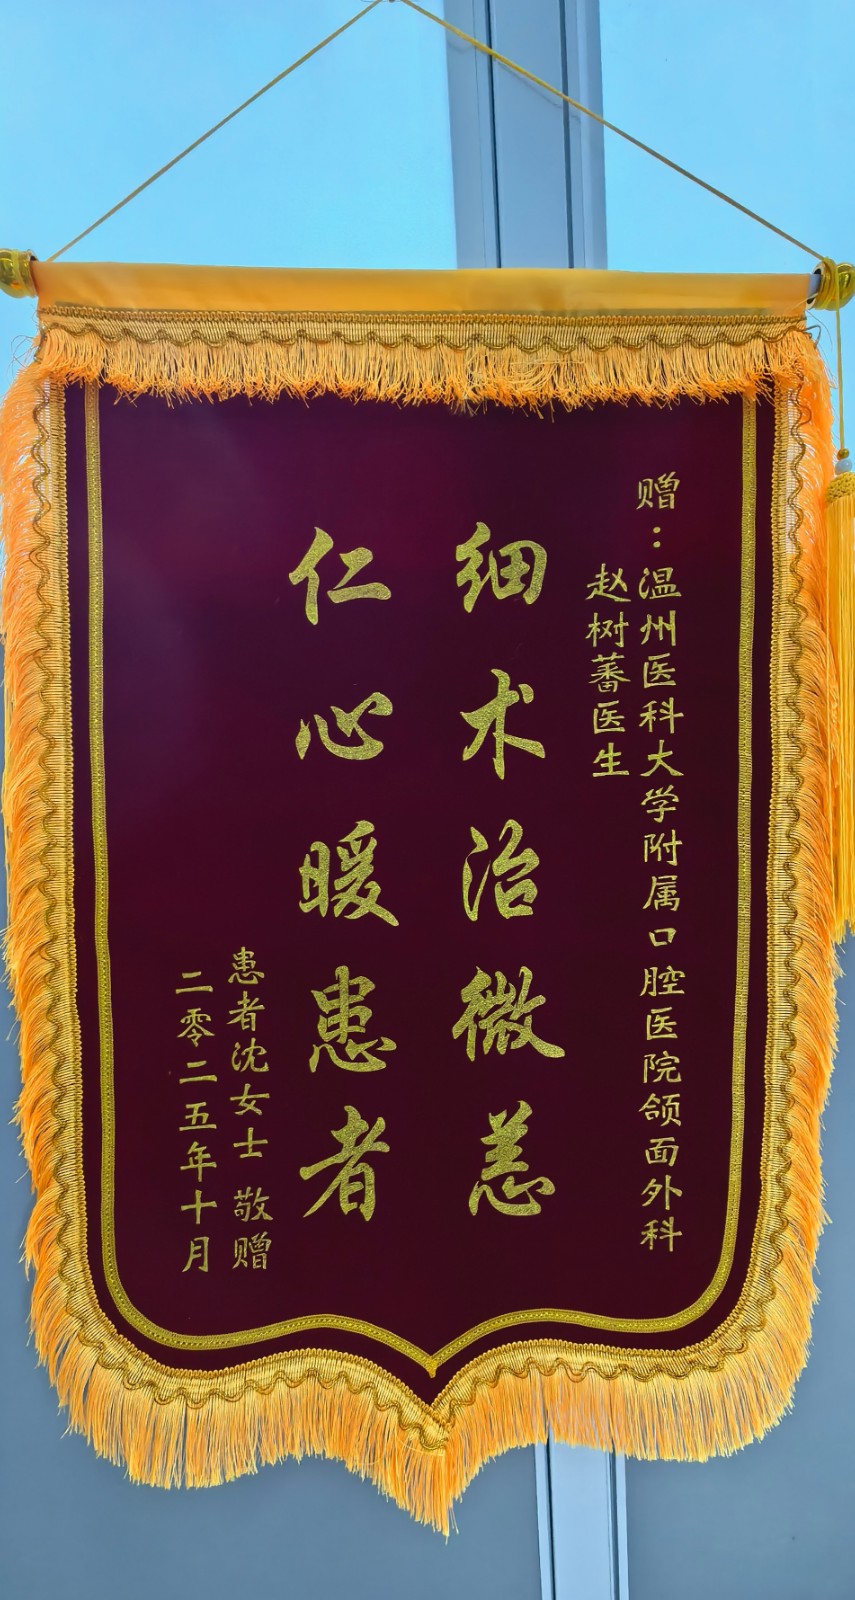 赠：温州医科大学附属口腔医院颌面外科
赵树蕃医生
细术治微恙
仁心暖患者
患者沈女士 敬赠
二零二五年十月